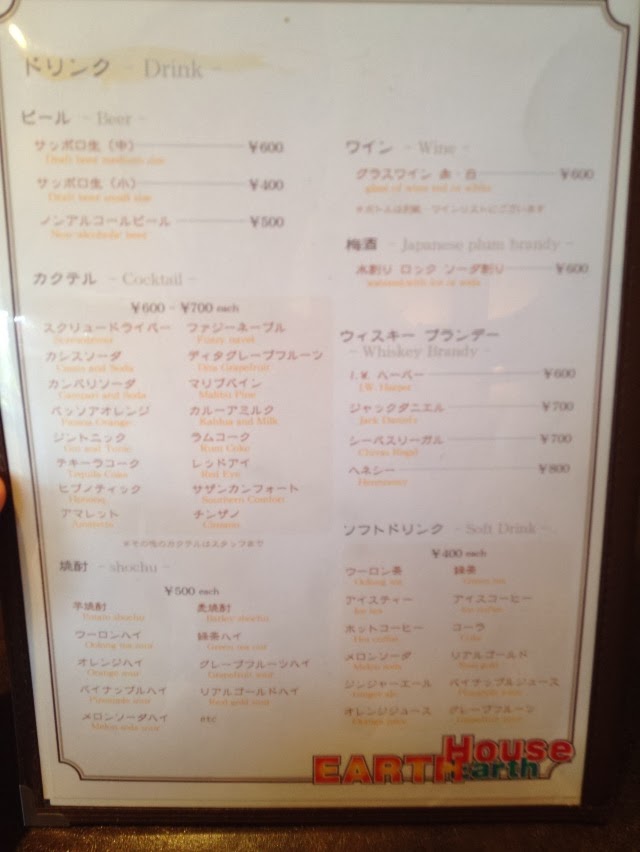 ドリンク - Drink -
ビール - Beer -
サッポロ生（中） ¥600
Draft beer medium size
サッポロ生（小） ¥400
Draft beer small size
ノンアルコールビール ¥500
Non-alcoholic beer
カクテル - Cocktail -
¥600 - ¥700 each
スクリュードライバー ファジーネーブル
Screwdriver Fuzzy navel
カシスソーダ ディタグレープフルーツ
Cassis and Soda Dita Grapefruit
カンパリソーダ マリブパイン
Campari and Soda Malibu Pine
パッソアオレンジ カルーアミルク
Passoa Orange Kahlua and Milk
ジントニック ラムコーク
Gin and Tonic Rum Coke
テキーラコーク レッドアイ
Tequila Coke Red Eye
ヒプノティック サザンカンフォート
Hpnotiq Southern Comfort
アマレット チンザノ
Amaretto Cinzano
※その他のカクテルはスタッフまで
焼酎 - shochu -
¥500 each
芋焼酎 麦焼酎
Potato shochu Barley shochu
ウーロンハイ 緑茶ハイ
Oolong tea sour Green tea sour
オレンジハイ グレープフルーツハイ
Orange sour Grapefruit sour
パイナップルハイ リアルゴールドハイ
Pineapple sour Real gold sour
メロンソーダハイ etc
Melon soda sour
ワイン - Wine -
グラスワイン 赤・白 ¥600
glass of wine red or white
※ボトルは別紙・ワインリストにございます
梅酒 - Japanese plum brandy -
水割り ロック ソーダ割り ¥600
with ice or soda
ウィスキー ブランデー
- Whiskey Brandy -
I.W. ハーパー ¥600
I.W. Harper
ジャックダニエル ¥700
Jack Daniels
シーバスリーガル ¥700
Chivas Regal
ヘネシー ¥800
Hennessy
ソフトドリンク - Soft Drink -
¥400 each
ウーロン茶 緑茶
Oolong tea Green tea
アイスティー アイスコーヒー
Ice tea Ice coffee
ホットコーヒー コーラ
Hot coffee Coke
メロンソーダ リアルゴールド
Melon soda Real gold
ジンジャーエール パイナップルジュース
Ginger ale Pineapple juice
オレンジジュース グレープフルーツ
Orange juice Grapefruit juice
House
EARTH earth